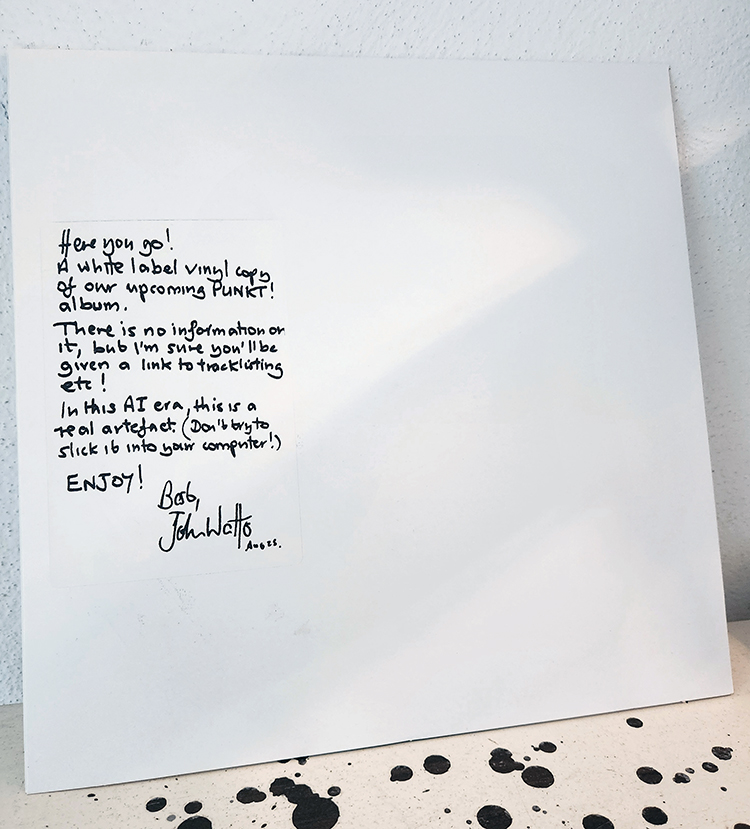 Here you go!
A white label vinyl copy
of our upcoming PUNKT!
album.
There is no information on
it, but I'm sure you'll be
given a link to tracklisting
etc!
In this AI era, this is a
real artefact. (Don't try to
slick it into your computer!)
ENJOY!
Best,
John Watts
Aug 25.